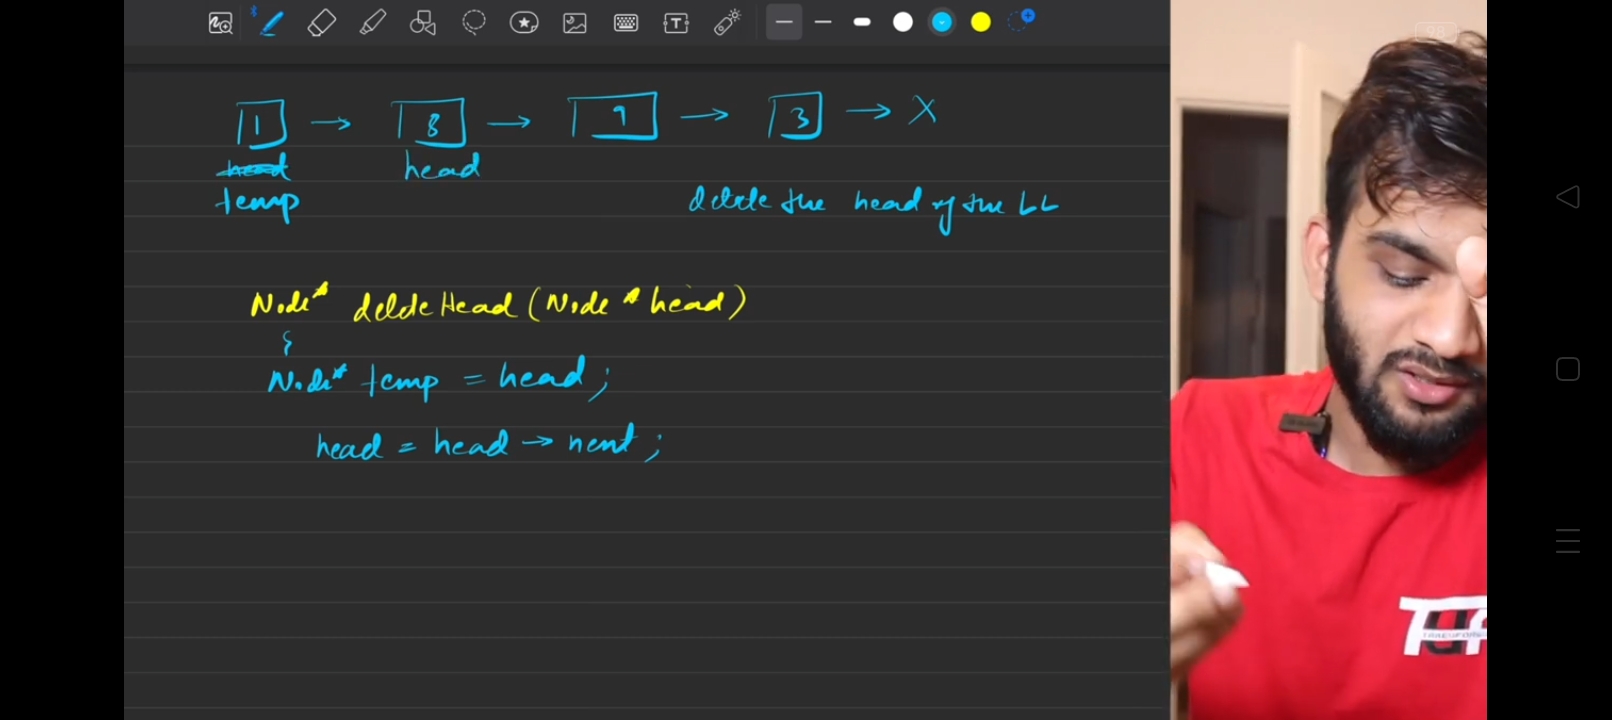 98
1 → 8 → 9 → 3 → X
head head
temp delete the head of the LL
Node* deleteHead (Node * head)
{
Node* temp = head ;
head = head → next ;
TUF